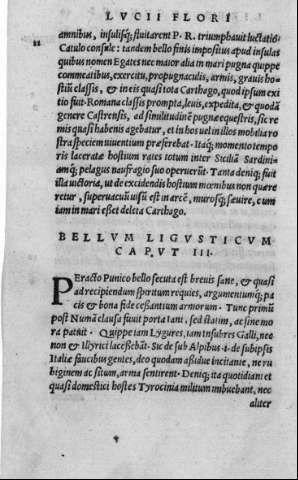 LVCII FLORI
amnibus, insulisq; fluitarent P. R. triumphauit luctatio.
Catulo consule: tandem bello finis impositus apud insulas
quibus nomen Egates nec maior alia in mari pugna quippe
commeatibus, exercitu, propugnaculis, armis, grauis ho=
stiũ classis, & in eis quasi tota Carthago, quod ipsum exi
tio fuit. Romana classis prompta, leuis, expedita, & quodã
genere Castrensis, ad similitudinẽ pugnæ equestris, sic re
mis quasi habenis agebatur, et in hos uel in illos mobilia ro
stra speciem uiuentium præferebat. Itaq; momento tempo
ris laceratæ hostium rates totum inter Siciliã Sardini=
amq; pelagus naufragio suo operuerũt. Tanta deniq; fuit
illa uictoria, ut de excidendis hostium mœnibus non quære
retur, superuacuũ uisũ est in arcẽ, murosq; sæuire, cum
iam in mari esset deleta Carthago.
BELLVM LIGVSTICVM
CAPVT III.
PEracto Punico bello secuta est breuis sane, & quasi
ad recipiendum spiritum requies, argumentumq; pa
cis & bona fide cessantium armorum. Tunc primũ
post Numã clausa fuit porta Iani, sed statim, ac sine mo
ra patuit. Quippe iam Lygures, iam Insubres Galli, nec
non & Illyrici lacessebãt. Sic de sub Alpibus .i. de sub ipsis
Italiæ faucibus gentes, deo quodam assidue incitante, ne ru
biginem ac situm, arma sentirent. Deniq; ita quotidiani et
quasi domestici hostes Tyrocinia militum imbuebant, nec
aliter